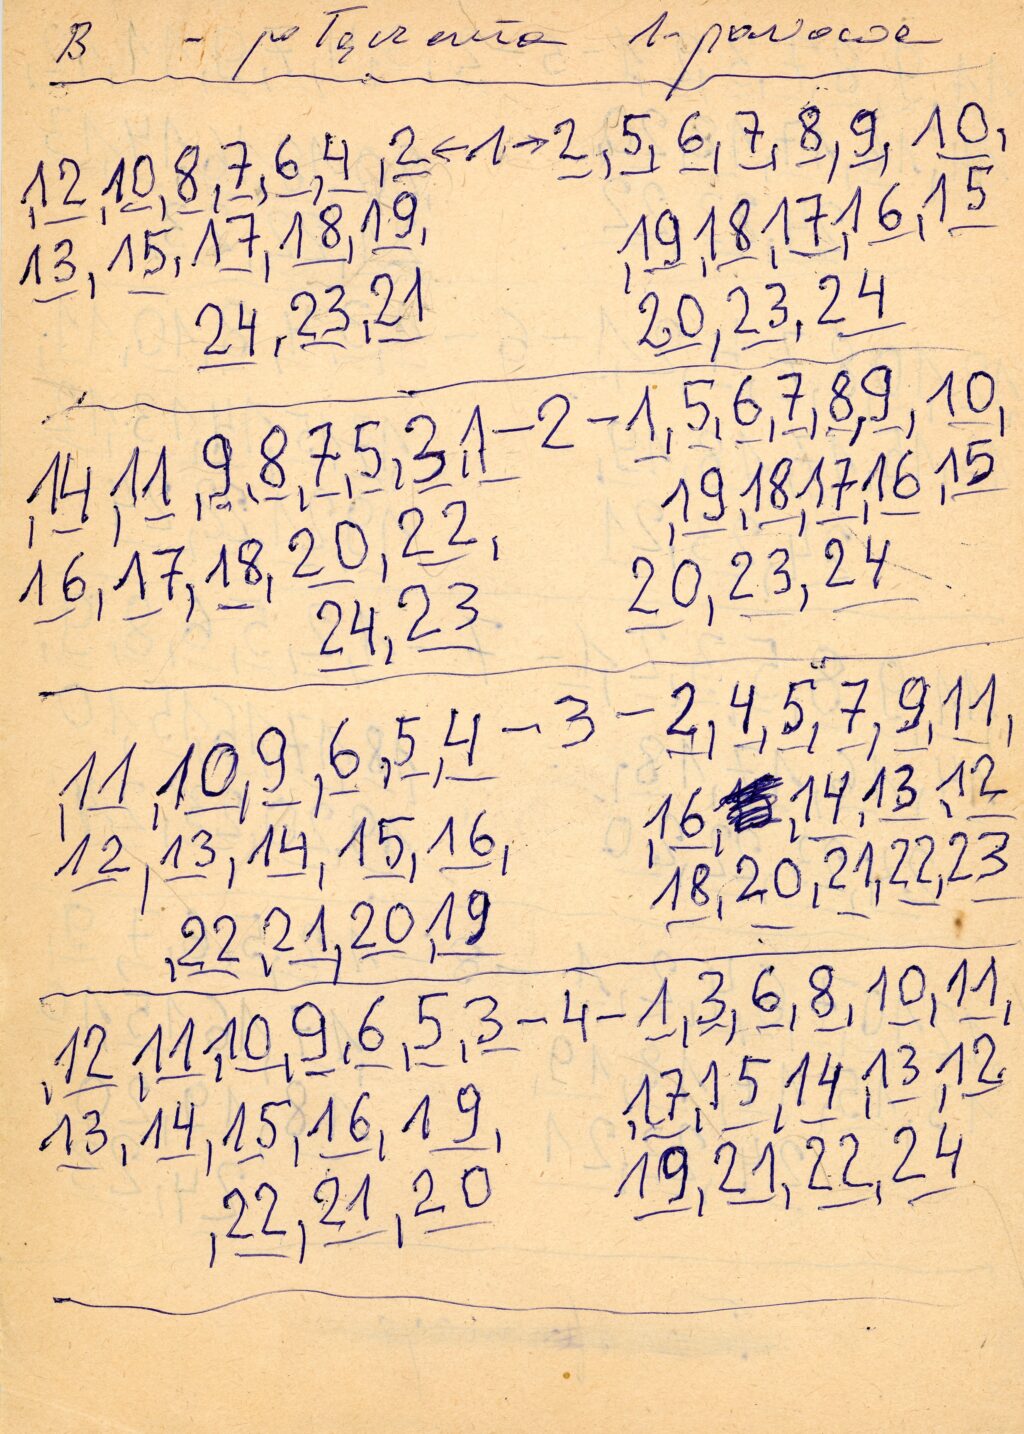 B - połączenia 1-parowe
12, 10, 8, 7, 6, 4, 2 ← 1 → 2, 5, 6, 7, 8, 9, 10,
13, 15, 17, 18, 19, 19, 18, 17, 16, 15
24, 23, 21 20, 23, 24
14, 11, 9, 8, 7, 5, 3, 1 - 2 - 1, 5, 6, 7, 8, 9, 10,
16, 17, 18, 20, 22, 19, 18, 17, 16, 15
24, 23 20, 23, 24
11, 10, 9, 6, 5, 4 - 3 - 2, 4, 5, 7, 9, 11,
12, 13, 14, 15, 16, 16, 14, 13, 12
22, 21, 20, 19 18, 20, 21, 22, 23
12, 11, 10, 9, 6, 5, 3 - 4 - 1, 3, 6, 8, 10, 11,
13, 14, 15, 16, 19, 17, 15, 14, 13, 12
22, 21, 20 19, 21, 22, 24